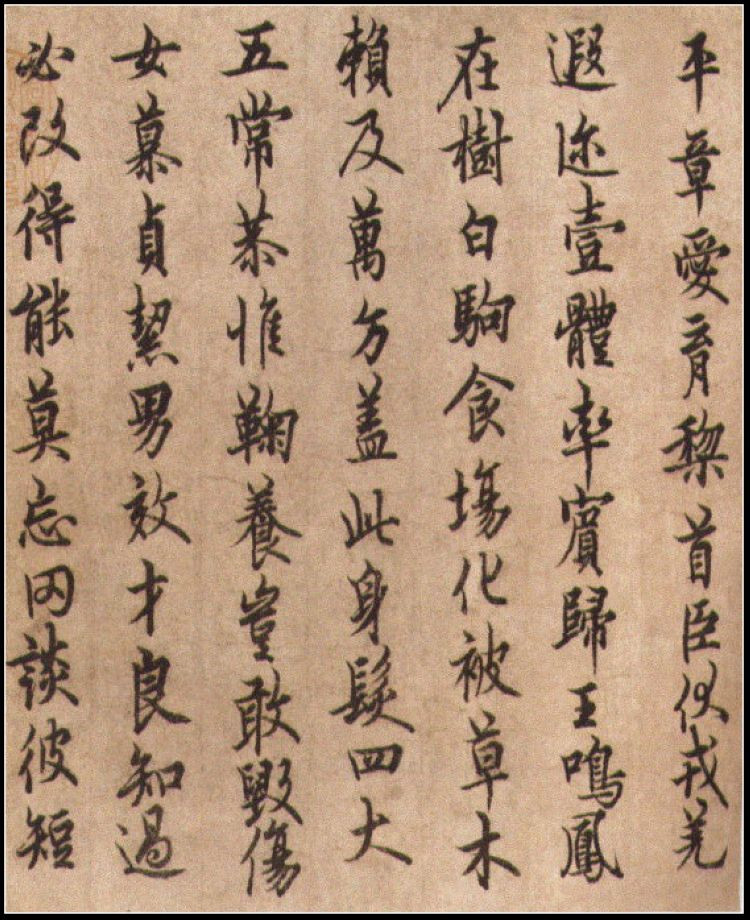 平章愛育黎首臣伏戎羌
遐迩壹體率賓歸王鳴鳳
在樹白駒食場化被草木
賴及萬方蓋此身髮四大
五常恭惟鞠養豈敢毀傷
女慕貞絜男效才良知過
必改得能莫忘罔談彼短